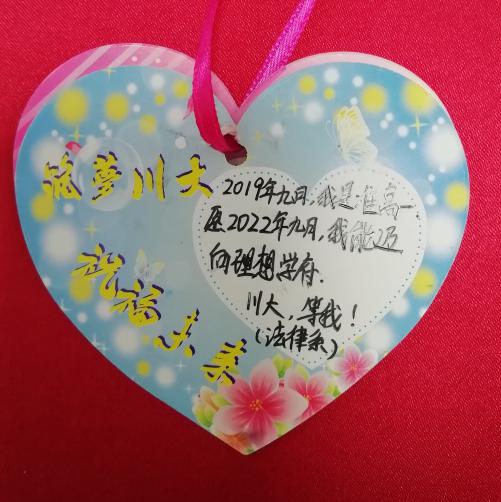 筑夢川大
祝福未来
2019年九月,我是准高一
愿2022年九月,我能迈
向理想学府.
川大,等我!
(法律系)